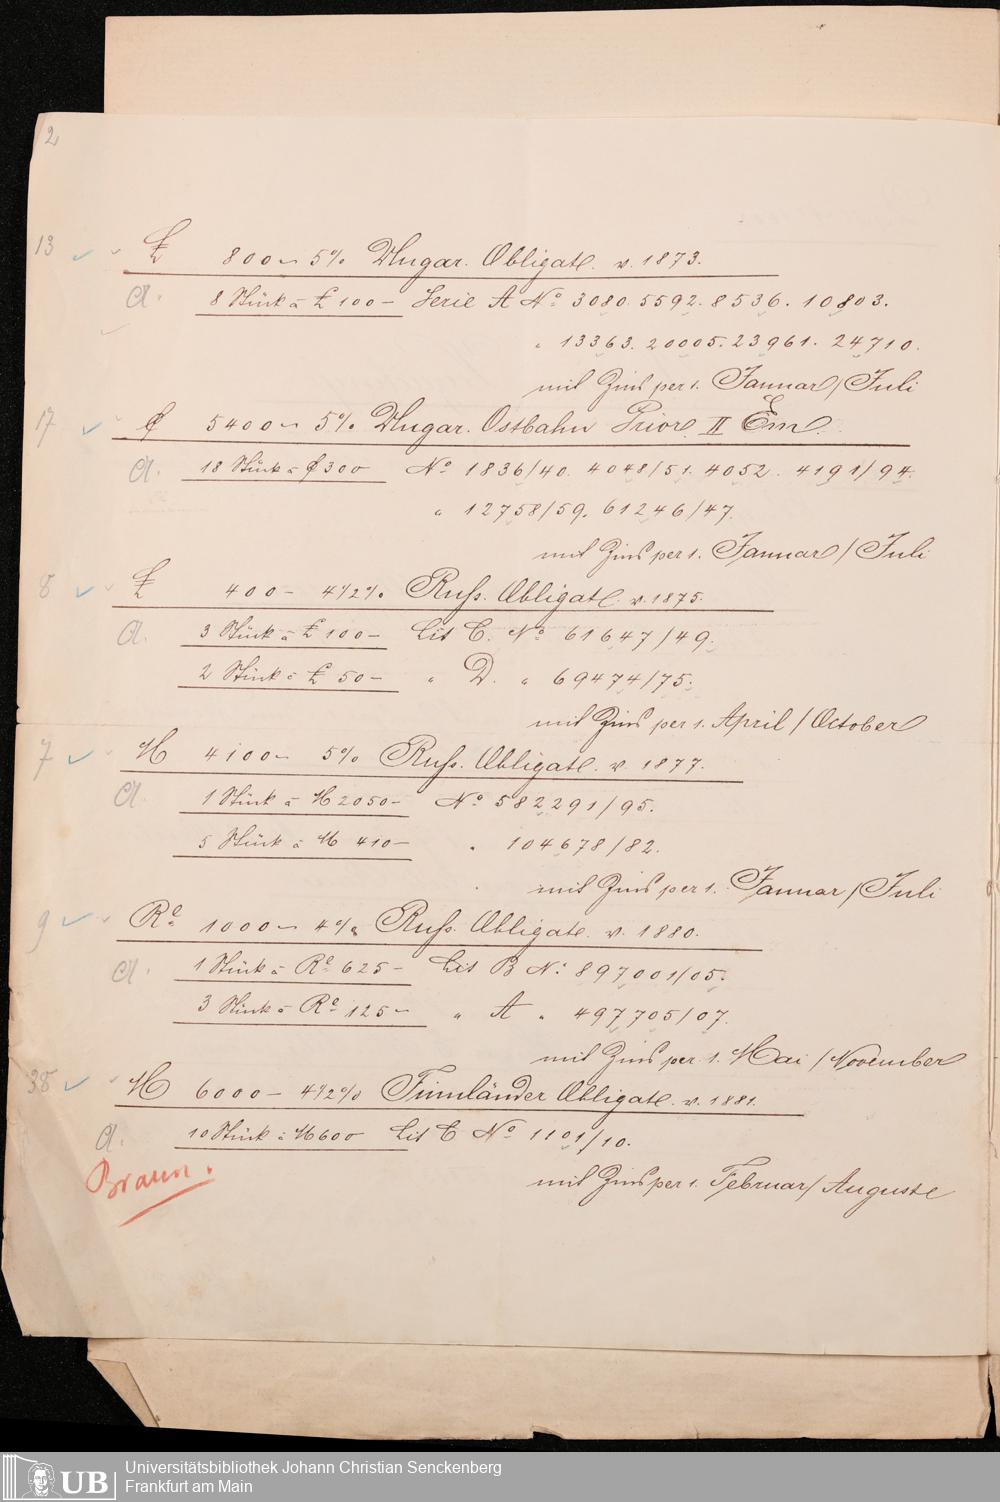 2
13 £ 800 – 5% Ungar. Obligat. v. 1873.
8 Stück à £ 100 – Serie A No 3080. 5592. 8536. 10803.
" 13363. 20005. 23961. 24710.
mit Zins per 1. Januar / Juli
17 5400 – 5% Ungar. Ostbahn Prior. II Em.
18 Stück à 300 No 1836/40. 4048/51. 4052. 4191/94.
" 12758/59. 61246/47.
mit Zins per 1. Januar / Juli
8 £ 400 – 4 1/2% Russ. Obligat. v. 1875.
3 Stück à £ 100 – Lit C. No 61647/49.
2 Stück à £ 50 – " D. " 69474/75.
mit Zins per 1. April / October
7 M 4100 – 5% Russ. Obligat. v. 1877.
1 Stück à M 2050 – No 582291/95.
5 Stück à M 410 – " 104678/82.
mit Zins per 1. Januar / Juli
9 Ro 1000 – 4% Russ. Obligat. v. 1880.
1 Stück à Ro 625 – Lit B No 897001/05.
3 Stück à Ro 125 – " A " 497705/07.
mit Zins per 1. Mai / November
38 M 6000 – 4 1/2% Finnländer Obligat. v. 1881.
10 Stück à M 600 Lit C No 1101/10.
Braun.
mit Zins per 1. Februar / Auguste
UB Universitätsbibliothek Johann Christian Senckenberg
Frankfurt am Main